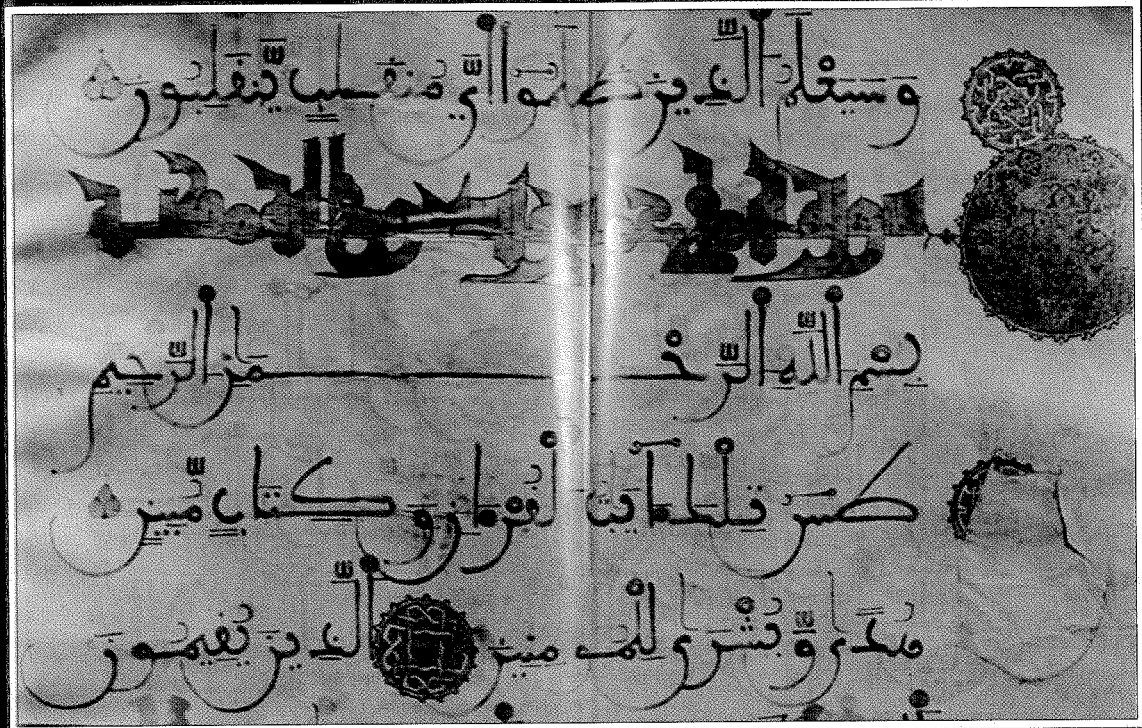 وَسَيَعْلَمُ الَّذِينَ ظَلَمُوا أَيَّ مُنقَلَبٍ يَّنقَلِبُونَ
بِسْمِ اللَّهِ الرَّحْمَٰنِ الرَّحِيمِ
طسٓ تِلْكَ ءَايَٰتُ الْقُرْءَانِ وَكِتَابٍ مُّبِينٍ
هُدًى وَّبُشْرَىٰ لِلْمُؤْمِنِينَ الَّذِينَ يُقِيمُونَ